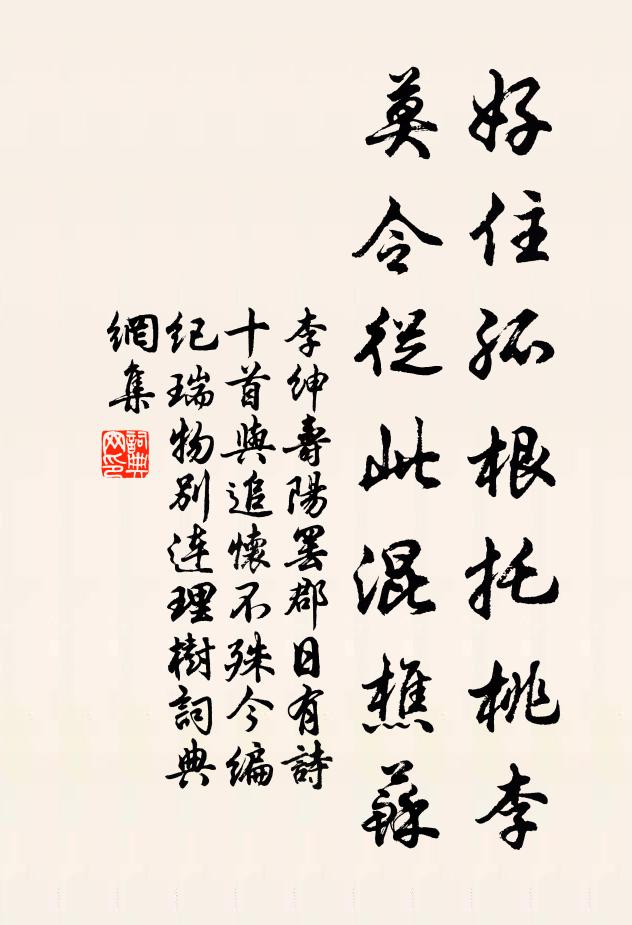 好住孤根托桃李
莫令從此混樵蘇
李紳壽陽罷郡日有詩
十首與追懷不殊今編
紀瑞物別連理樹詞典
網集
詞典網印